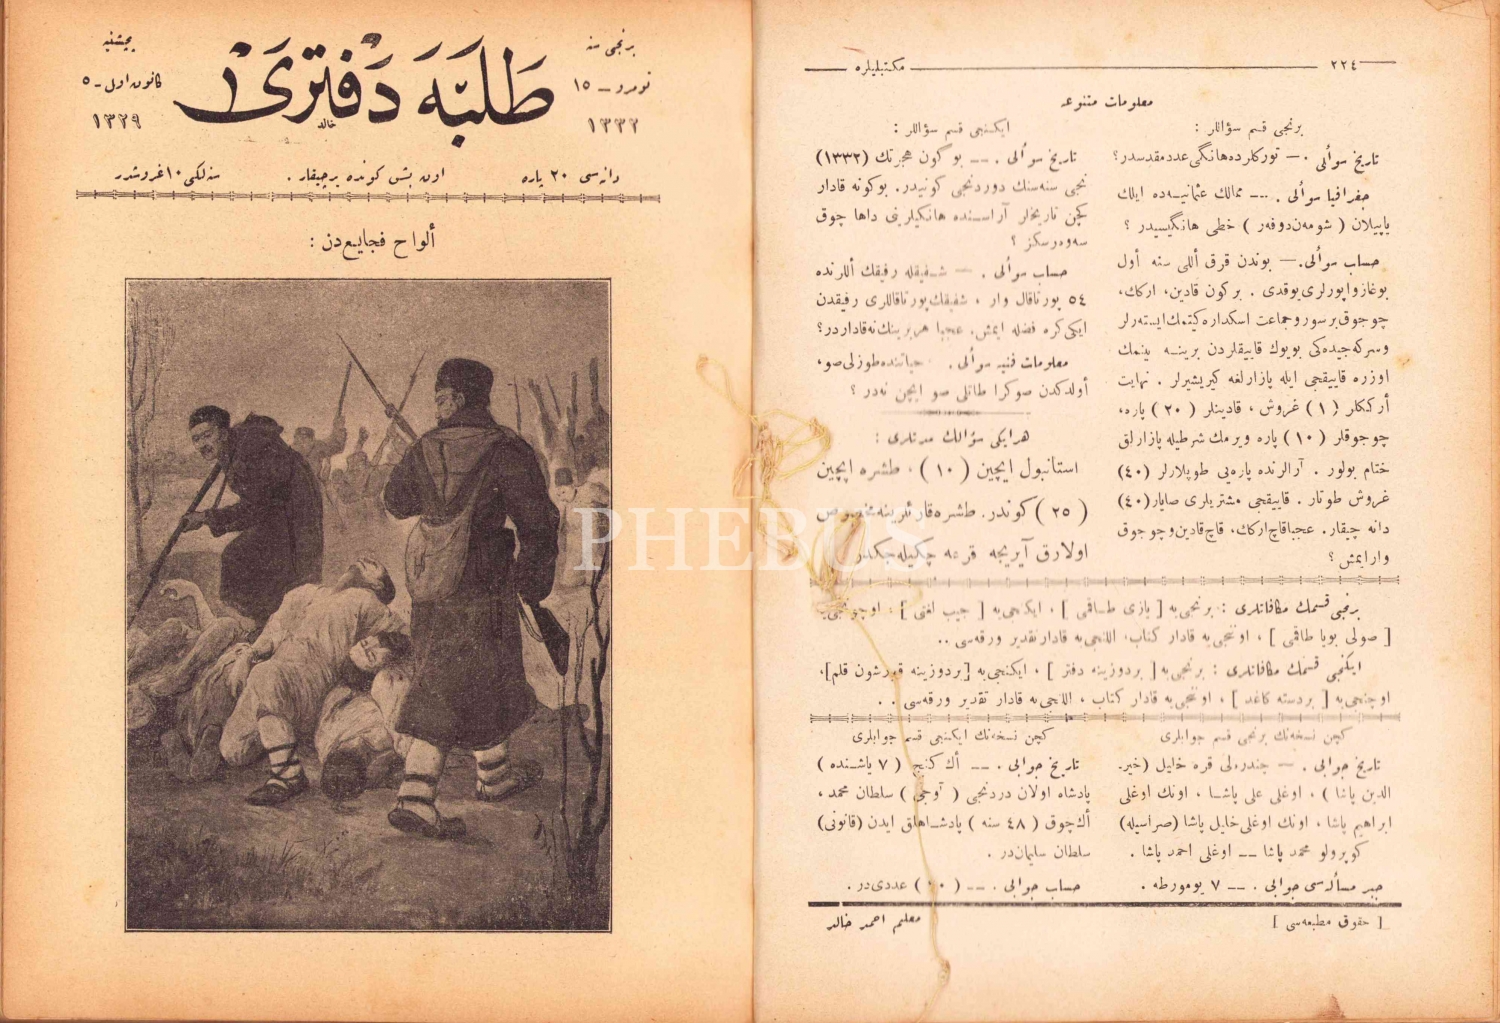 برنجی سنه
نومرو — ١٥
١٣٣٢
طلبه دفتری
خالد
پنجشنبه
كانون اول - ٥
١٣٢٩
دانه‌سی ٢٠ پاره
اون بشی كونده بر چیقار .
سنه‌لكی ١٠ غروشدر
ألواح فجایعدن :
PHEBUS
٢٢٤
مكتبلیلره
معلومات متنوعه
برنجی قسم سؤاللر :
تاریخ سوألی . — توركلرده هانگی عدد مقدسدر ؟
جغرافیا سوألی . — ممالك عثمانیه‌ده ایلك
یاپیلان ( شومه‌ن‌دوفه‌ر ) خطی هانگیسیدر ؟
حساب سوألی . — بوندن قرق أللی سنه أول
بوغاز واپورلری یوقدی . بر كون قادین، اركك،
چوجوق بر سورو جماعت اسكداره كیتمك ایسته‌رلر
وسركه‌جیده‌كی بویوك قاییقلردن برینه بینمك
اوزره قاییقجی ایله پازارلغه كیریشیرلر . نهایت
أرككلر ( ١ ) غروش ، قادینلر ( ٢٠ ) پاره،
چوجوقلر ( ١٠ ) پاره ویرمك شرطیله پازارلق
ختام بولور . آرالرنده پاره‌یی طوپلارلر (٤٠)
غروش طوتار . قاییقجی مشتریلری صایار (٤٠)
دانه چیقار. عجبا قاچ اركك، قاچ قادین و چوجوق
وار ایمش ؟
ایكنجی قسم سؤاللر :
تاریخ سوألی . — بو كون هجرتك (١٣٣٢)
نجی سنه‌سنك دوردنجی كونیدر. بوكونه قادار
كچن تاریخلر آراسنده هانكیلرینی داها چوق
سه‌وه‌رسكز ؟
حساب سوألی . — شفیقله رفیقك أللرنده
٥٤ پورتاقال وار ، شفیقك پورتاقاللری رفیقدن
ایكی كره فضله ایمش. عجبا هر برینك نه‌قاداردر ؟
معلومات فنیه سوألی . حیاتنده طوزلی صو،
أولدكدن صوكرا طاتلی صو ایچن نه‌در ؟
هر ایكی سؤالك مدتلری :
استانبول ایچین ( ١٠ ) ، طشره ایچین
( ٢٥ ) كوندر. طشره قارئلرینه مخصوص
اولارق آیریجه قرعه چكیله‌جكدر
برنجی قسمك مكافاتلری : برنجی‌یه [ یازی طاقمی ] ، ایكنجی‌یه [ جیب لغتی ] ، اوچونجی‌یه
[ صولی بویا طاقمی ] ، اوننجی‌یه قادار كتاب، اللنجی‌یه قادار تقدیر ورقه‌سی ..
ایكنجی قسمك مكافاتلری : برنجی‌یه [ بر دوزینه دفتر ] ، ایكنجی‌یه [ بر دوزینه قورشون قلم ]،
اوچنجی‌یه [ بر دسته كاغد ] ، اوننجی‌یه قادار كتاب ، اللنجی‌یه قادار تقدیر ورقه‌سی . .
كچن نسخه‌نك برنجی قسم جوابلری
تاریخ جوابی . — چندرلی قره خلیل (خیر-
الدین پاشا ) ، اوغلی علی پاشا ، اونك اوغلی
ابراهیم پاشا ، اونك اوغلی خلیل پاشا (صراسیله)
كوپرولو محمد پاشا — اوغلی احمد پاشا .
جبر مسأله‌سی جوابی . — ٧ یومورطه .
كچن نسخه‌نك ایكنجی قسم جوابلری
تاریخ جوابی . — أك كنج ( ٧ یاشنده )
پادشاه اولان دردنجی ( آوجی ) سلطان محمد ،
أك چوق ( ٤٨ سنه ) پادشاهلق ایدن (قانونی)
سلطان سلیماندر .
حساب جوابی . — عددی‌در .
[ حقوق مطبعه‌سی ]
معلم احمد خالد